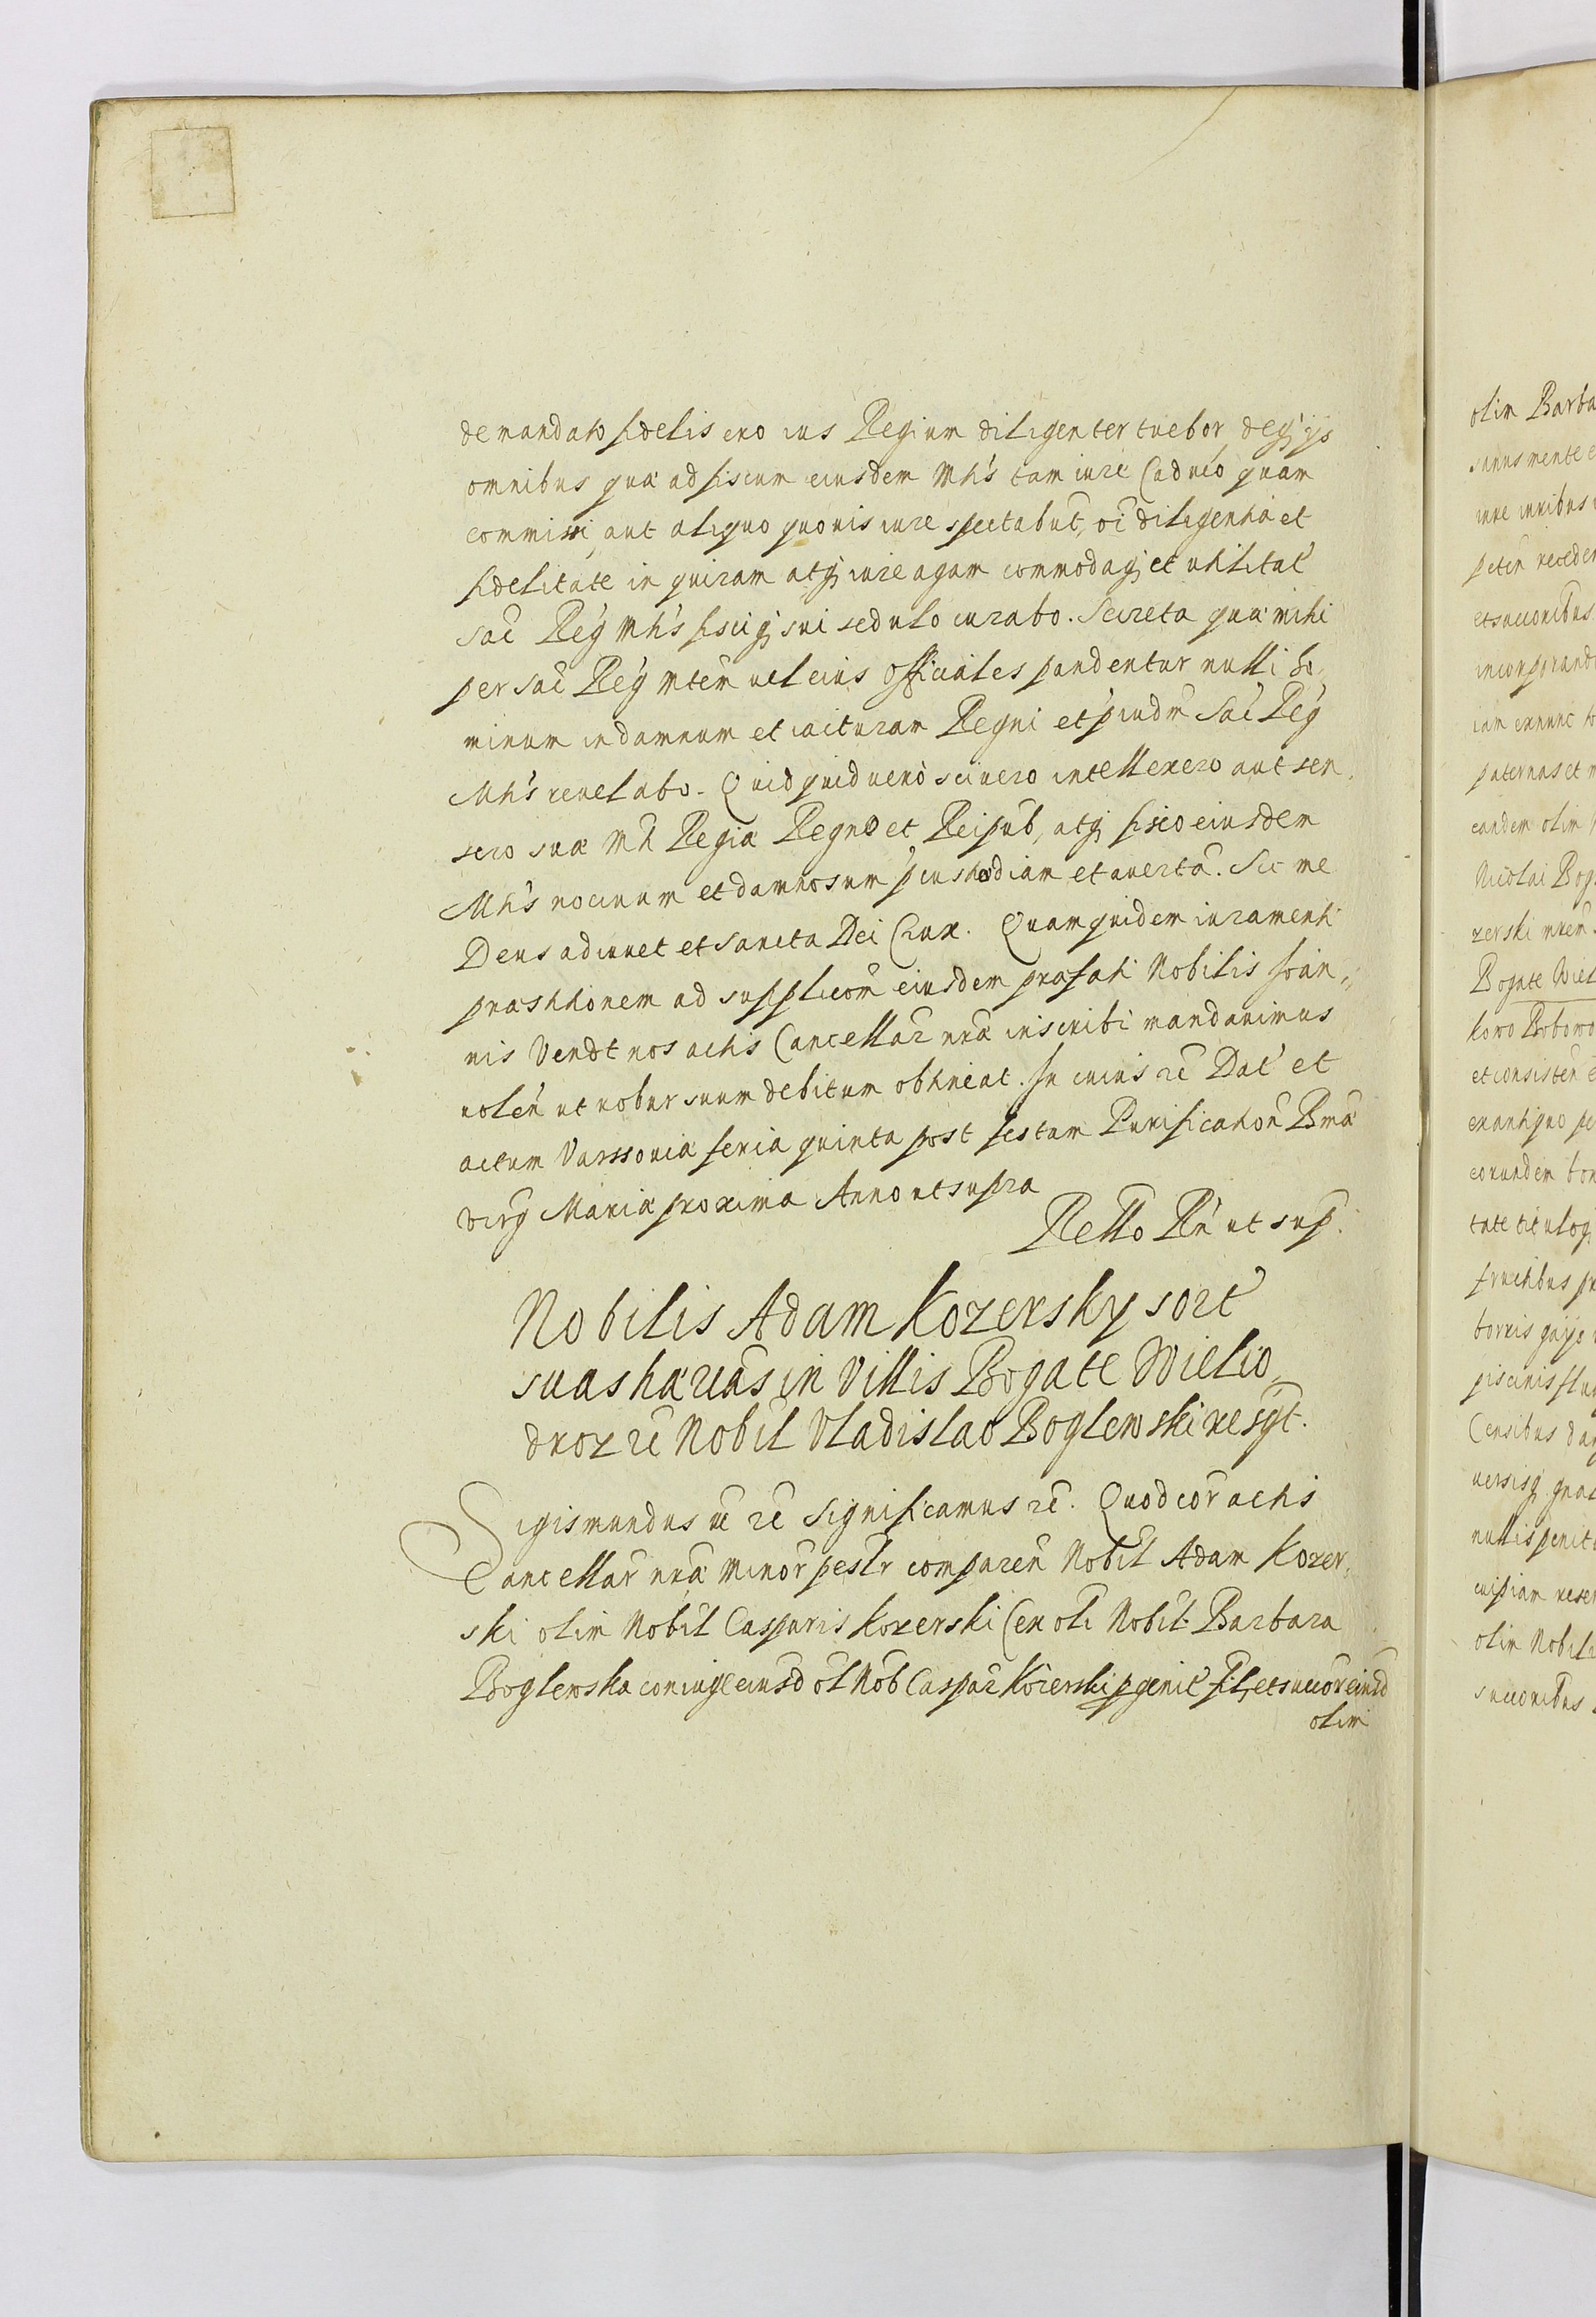 demandato fidelis ero ius Regium diligenter tuebor deq; ijs
omnibus quæ ad fiscum eiusdem Mtis tam iure Caduco quam
commissi, aut aliquo quovis iure spectabut, oi diligentia et
fidelitate inquiram atq; iure agam commodaq; et utilitat
Sac Reg Mtis fisciq; sui sedulo curabo. Secreta quæ mihi
per Sac Reg Mtem vel eius Officiales pandentur nulli ho
minum in damnum et iacturam Regni et piudm Sac Reg
Mtis revelabo. Quidquid vero scivero intellexero aut sen
sero suæ Mti Regiæ Regno et Reipub, atq; fisco eiusdem
Mtis nocivum et damnosum p custodiam et averta. Sic me
Deus adiuvet et Sancta Dei Crux. Quam quidem iuramenti
præstitionem ad supplicom eiusdem præfati Nobilis Joan
nis Vendt nos actis Cancellar nræ inscribi mandavimus
volen ut robur suum debitum obtineat. In cuius rei Dat et
actum Varssoviæ feria quinta post festum Purification Bmæ
virg Mariæ proxima Anno ut supra
Rello Rn ut sup.
Nobilis Adam Kozersky sort
suas hæreas in Villis Bogate Wielio
droz etc Nobil Vladislao Boglewski resgt.
Sigismundus etc etc Significamus etc. Quod cor actis
Cancellar nræ Minor pestr comparen Nobil Adam Kozer
ski olim Nobil Casparis Kozerski Cen oli Nobil Barbara
Boglewska coniuge eiusd ol Nob Caspar Kozerski pgenit fil, et succor eiusd
olim
olim Barba
sanus mente e
iure iuribus
peten recede
et succoribus
incorporand
iam exnunc
paternas et m
eandem olim
Nicolai Bog
zerski
Bogate Wiel
kowo Boboro
et consisten
ex antiquo
eorundem bon
tate tituloq;
fructibus
piscinis flu
Censibus da
versisq;
nullis penit
cuipiam reser
olim Nobili
succoribus